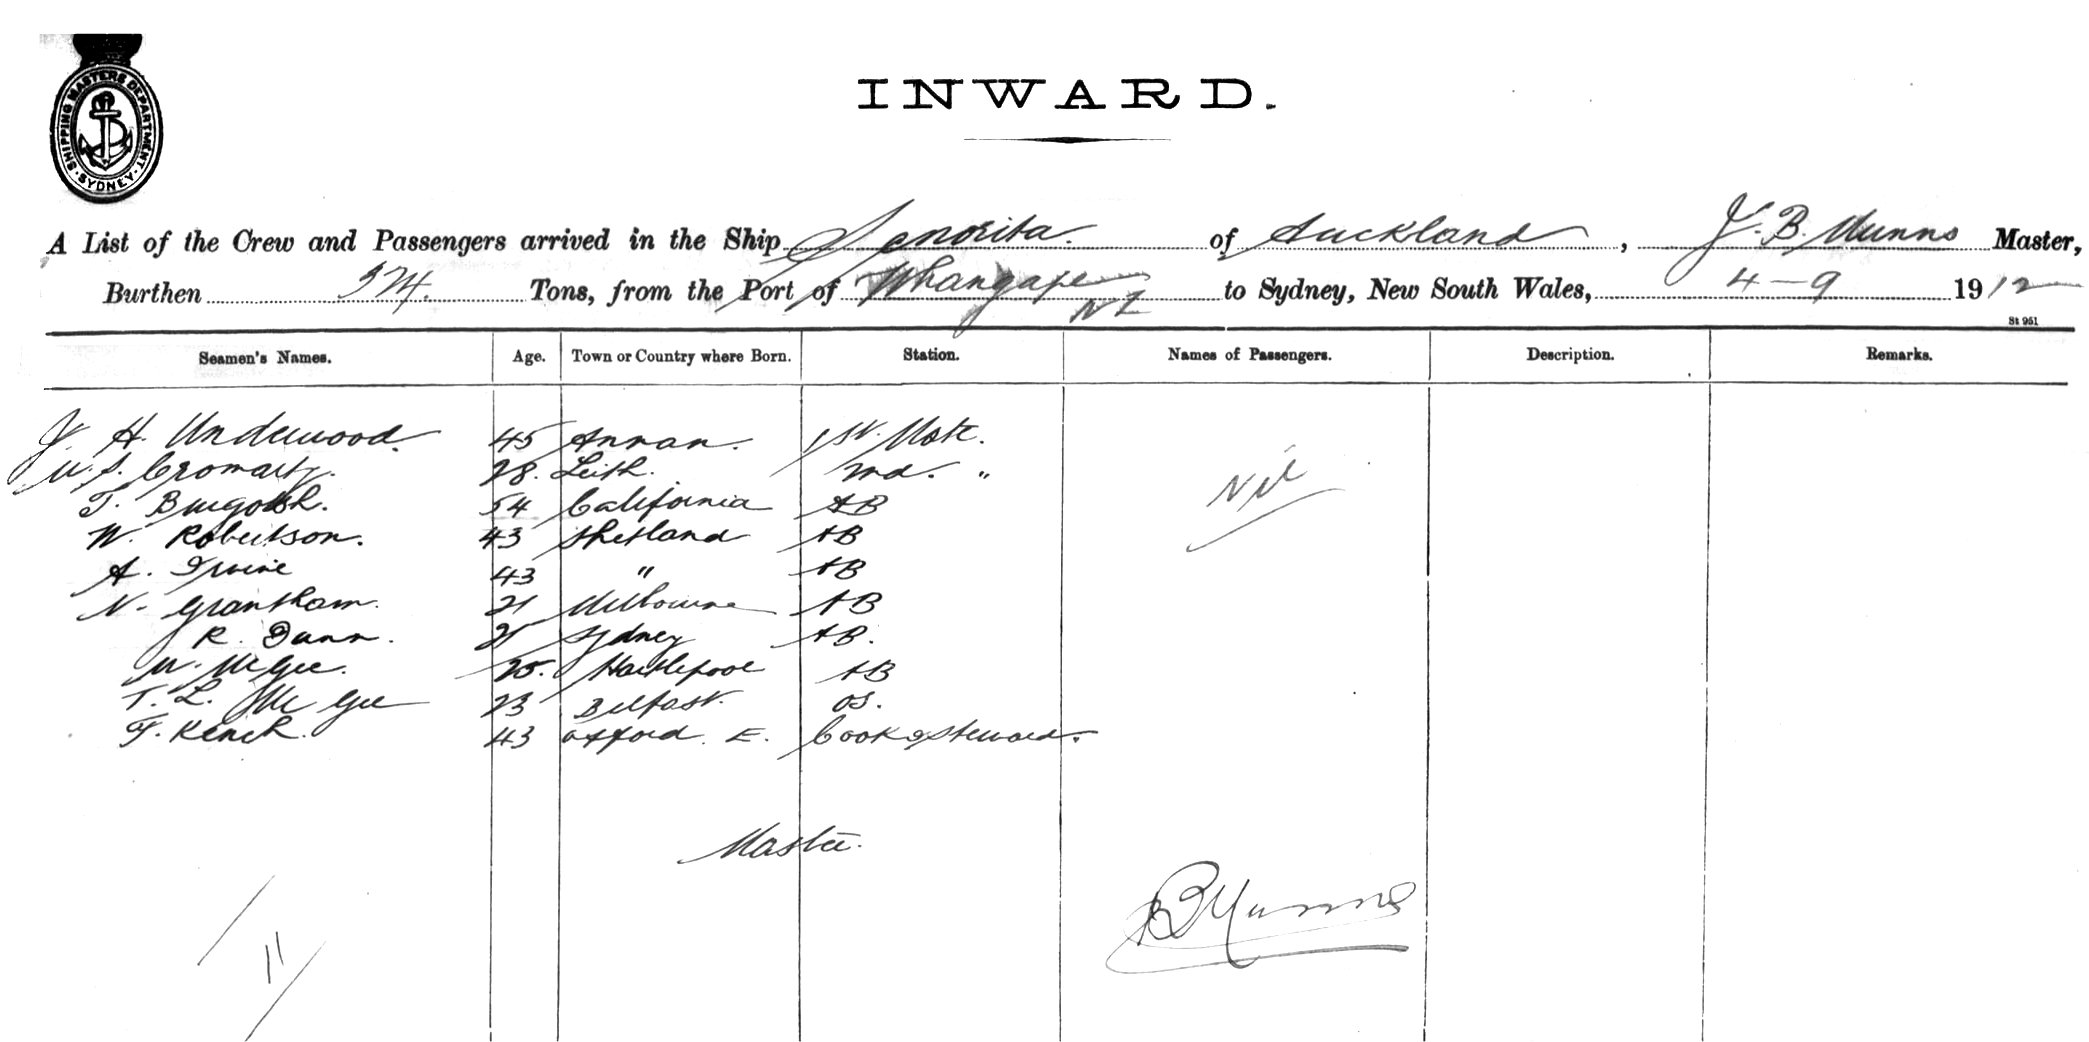 SHIPPING MASTERS DEPARTMENT
SYDNEY
INWARD.
A List of the Crew and Passengers arrived in the Ship Senorita. of Auckland, J. B. Munns Master,
Burthen Tons, from the Port of Whangape NZ to Sydney, New South Wales, 4-9 1912
St 951
Seamen's Names. Age. Town or Country where Born. Station. Names of Passengers. Description. Remarks.
J. H. Underwood. 45 Annan. 1st. Mate. Nil
W. S. Cromarty. 28. Leith. 2nd. "
T. 54 California AB
W. Robertson. 43 Shetland AB
A. Irvine 43 " AB
N. Grantham. 21 Melbourne AB
R. Dunn. 21 Sydney AB.
W. McGee. 25. Hartlepool AB
T. L. McGee 23 Belfast. OS.
F. Kench. 43 Oxford. E. Cook & Steward.
Master.
JBMunns
11